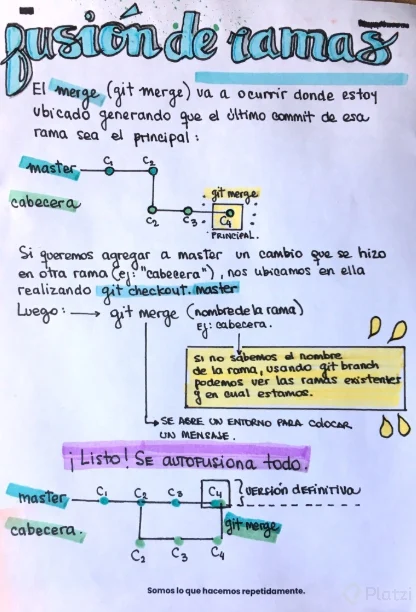 fusión de ramas
El merge (git merge) va a ocurrir donde estoy
ubicado generando que el último commit de esa
rama sea el principal:
master
C1 C2
git merge
cabecera
C2 C3 C4
PRINCIPAL.
Si queremos agregar a master un cambio que se hizo
en otra rama (ej: "cabecera"), nos ubicamos en ella
realizando git checkout. master
Luego: → git merge (nombre de la rama)
Ej: cabecera.
si no sabemos el nombre
de la rama, usando git branch
podemos ver las ramas existentes
y en cual estamos.
SE ABRE UN ENTORNO PARA COLOCAR
UN MENSAJE.
¡Listo! SE AUTOFUSIONA TODO.
master
C1 C2 C3 C4
VERSIÓN DEFINITIVA
cabecera.
git merge
C2 C3 C4
Somos lo que hacemos repetidamente.
Platzi